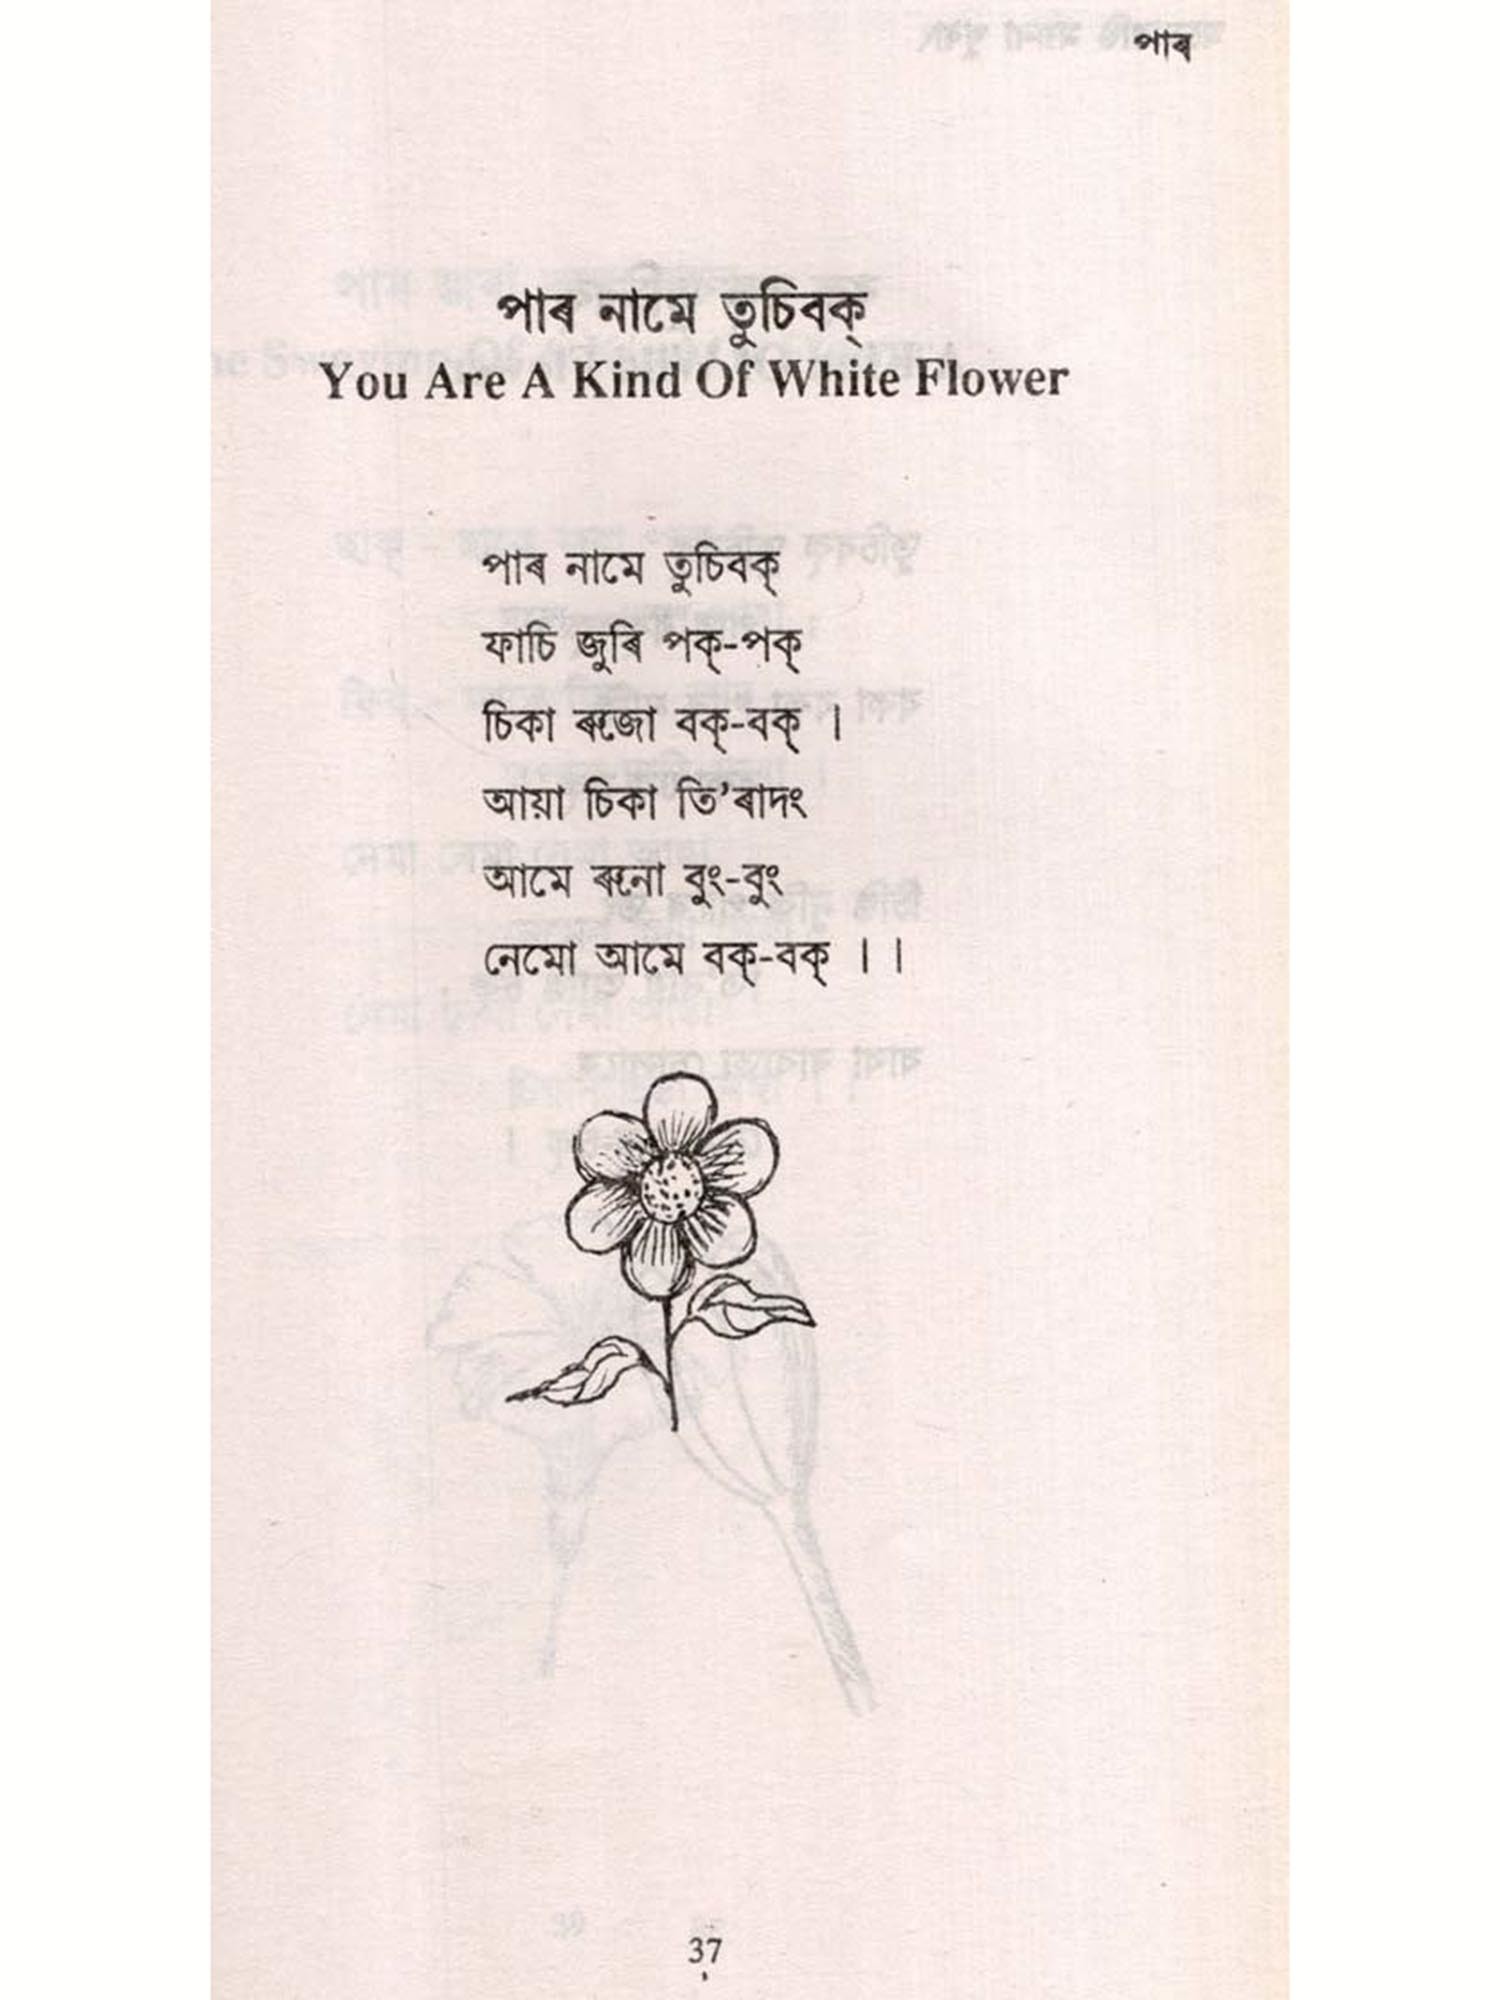 পাৰ
পাৰ নামে তুচিবক্
You Are A Kind Of White Flower
পাৰ নামে তুচিবক্
ফাচি জুৰি পক্-পক্
চিকা ৰুজো বক্-বক্ ।
আয়া চিকা তি’ৰাদং
আমে ৰুনো বুং-বুং
নেমো আমে বক্-বক্ । ।
37